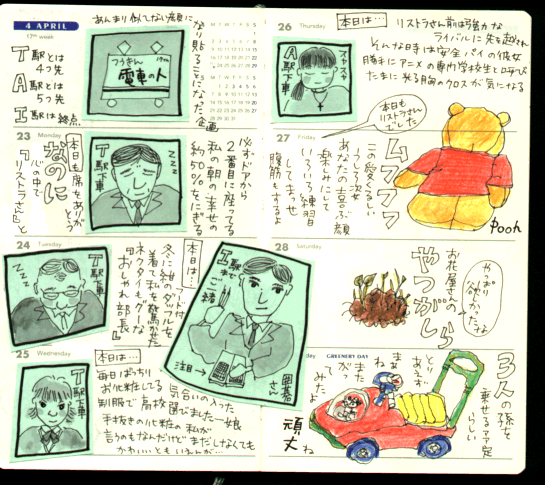 4 APRIL
17th week
T駅とは
4つ先
A駅とは
5つ先
I駅は終点
あんまり似てない順に
なり貼ることになった企画
つうきん
電車の人
M T W T F S S
23 Monday
本日も席をありがとう
なのに
心の中で
『リストラさん』と
T駅下車
ZZZ
必ずドアから
2番目に座ってる
私の朝の幸せの
約50%をにぎる
24 Tuesday
ZZZ
T駅下車
本日は…
冬に紺のダッフルを
着て私を驚かせた
ネクタイもクールな
『おしゃれ部長』
I駅まで
ご一緒
注目→
囲碁さん
25 Wednesday
T駅下車
本日は…
毎日ばっちり
お化粧してる
気合いの入った
制服で高校選びました一娘
手抜きの化粧の私が
言うのもなんだけどまだしなくても
かわいいと思いんが…
26 Thursday
A駅下車
スヤスヤ
本日は…
リストラさん前は強力な
ライバルに先を越され
そんな時は安全パイの彼女
勝手にアニメの専門学校生と呼び
たまに光る胸のクロスが気になる
27 Friday
本日も
リストラさん
でした
ムフフフ
この愛くるしい
うしろ姿
あなたの喜ぶ顔
楽しみにして
いろいろ練習
してまっせ
腹筋もするよ
Pooh
28 Saturday
やっぱり
欲かったよ
お花屋さんの
やつがしら
GREENERY DAY
3人の孫を
乗せるア定
らしい
とりあえず
まぁ
また
がって
みたよ
頑丈ね